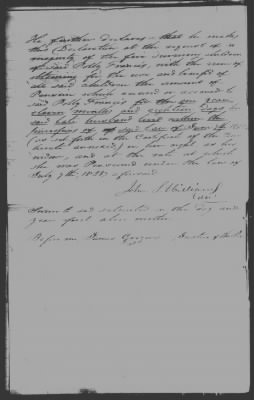 He further declares that he makes
this Declaration at the request of a
majority of the five surviving children
of said Polly Francis, with the view of
obtaining for the use and benefit of
all said children the amount of
Pension which accrued or accrued to
said Polly Francis for the one year
eleven months and eighteen days her
said late husband lived within the
purview of said Law of June 7th
(as set forth in the Certificate of the
hereto annexed) in her right as his
widow, and at the rate at which
she was Pensioned under the Law of
July 7th 1838 aforesaid
John Williams
Sworn to and subscribed on the day and
year first above written
Before me James Justice of the Peace